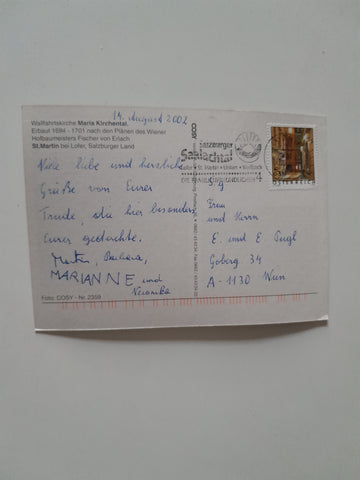 14. August 2002
Wallfahrtskirche Maria Kirchental,
Erbaut 1694 - 1701 nach den Plänen des Wiener
Hofbaumeisters Fischer von Erlach
St.Martin bei Lofer, Salzburger Land
Viele liebe und herzliche
Grüße von Eurer
Trude, die hier besonders
Eurer gedachte.
Barbara,
MARIANNE und
Veronika
Foto: COSY - Nr. 2359
COSY
Salzburger
Saalachtal
Lofer • St. Martin • Unken • Weißbach
ÖSTERREICH
Frau
und Herrn
E. und E. Peigl
Goberg. 34
A-1130 Wien